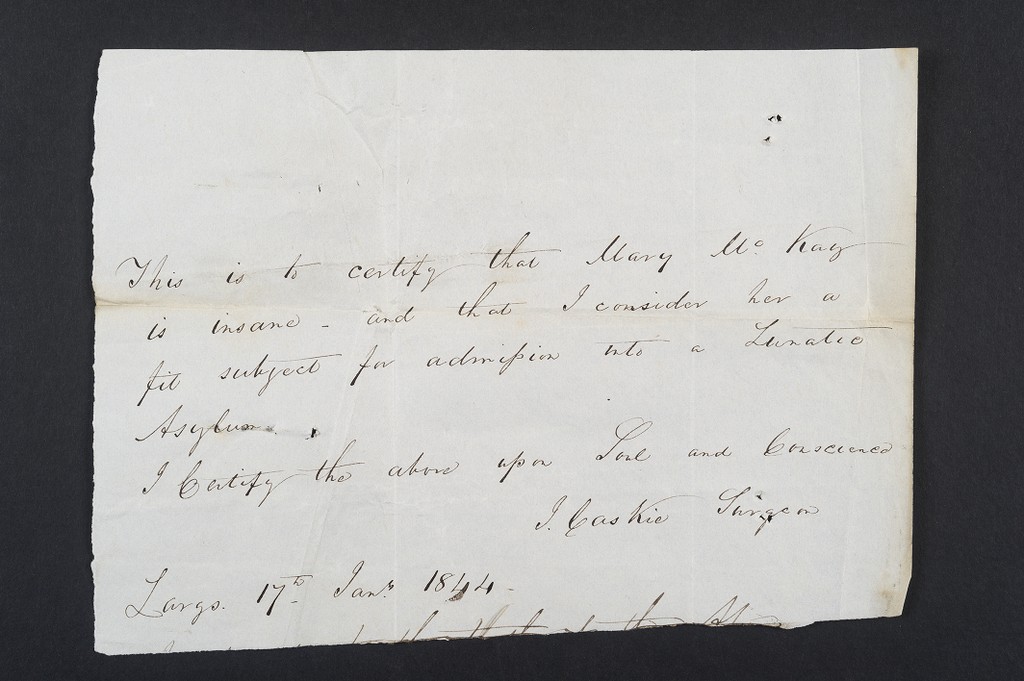 This is to certify that Mary Mc Kay
is insane - and that I consider her a
fit subject for admission into a Lunatic
Asylum.
I Certify the above upon Soul and Conscience
J. Caskie Surgeon
Largs. 17th Janr. 1844 -